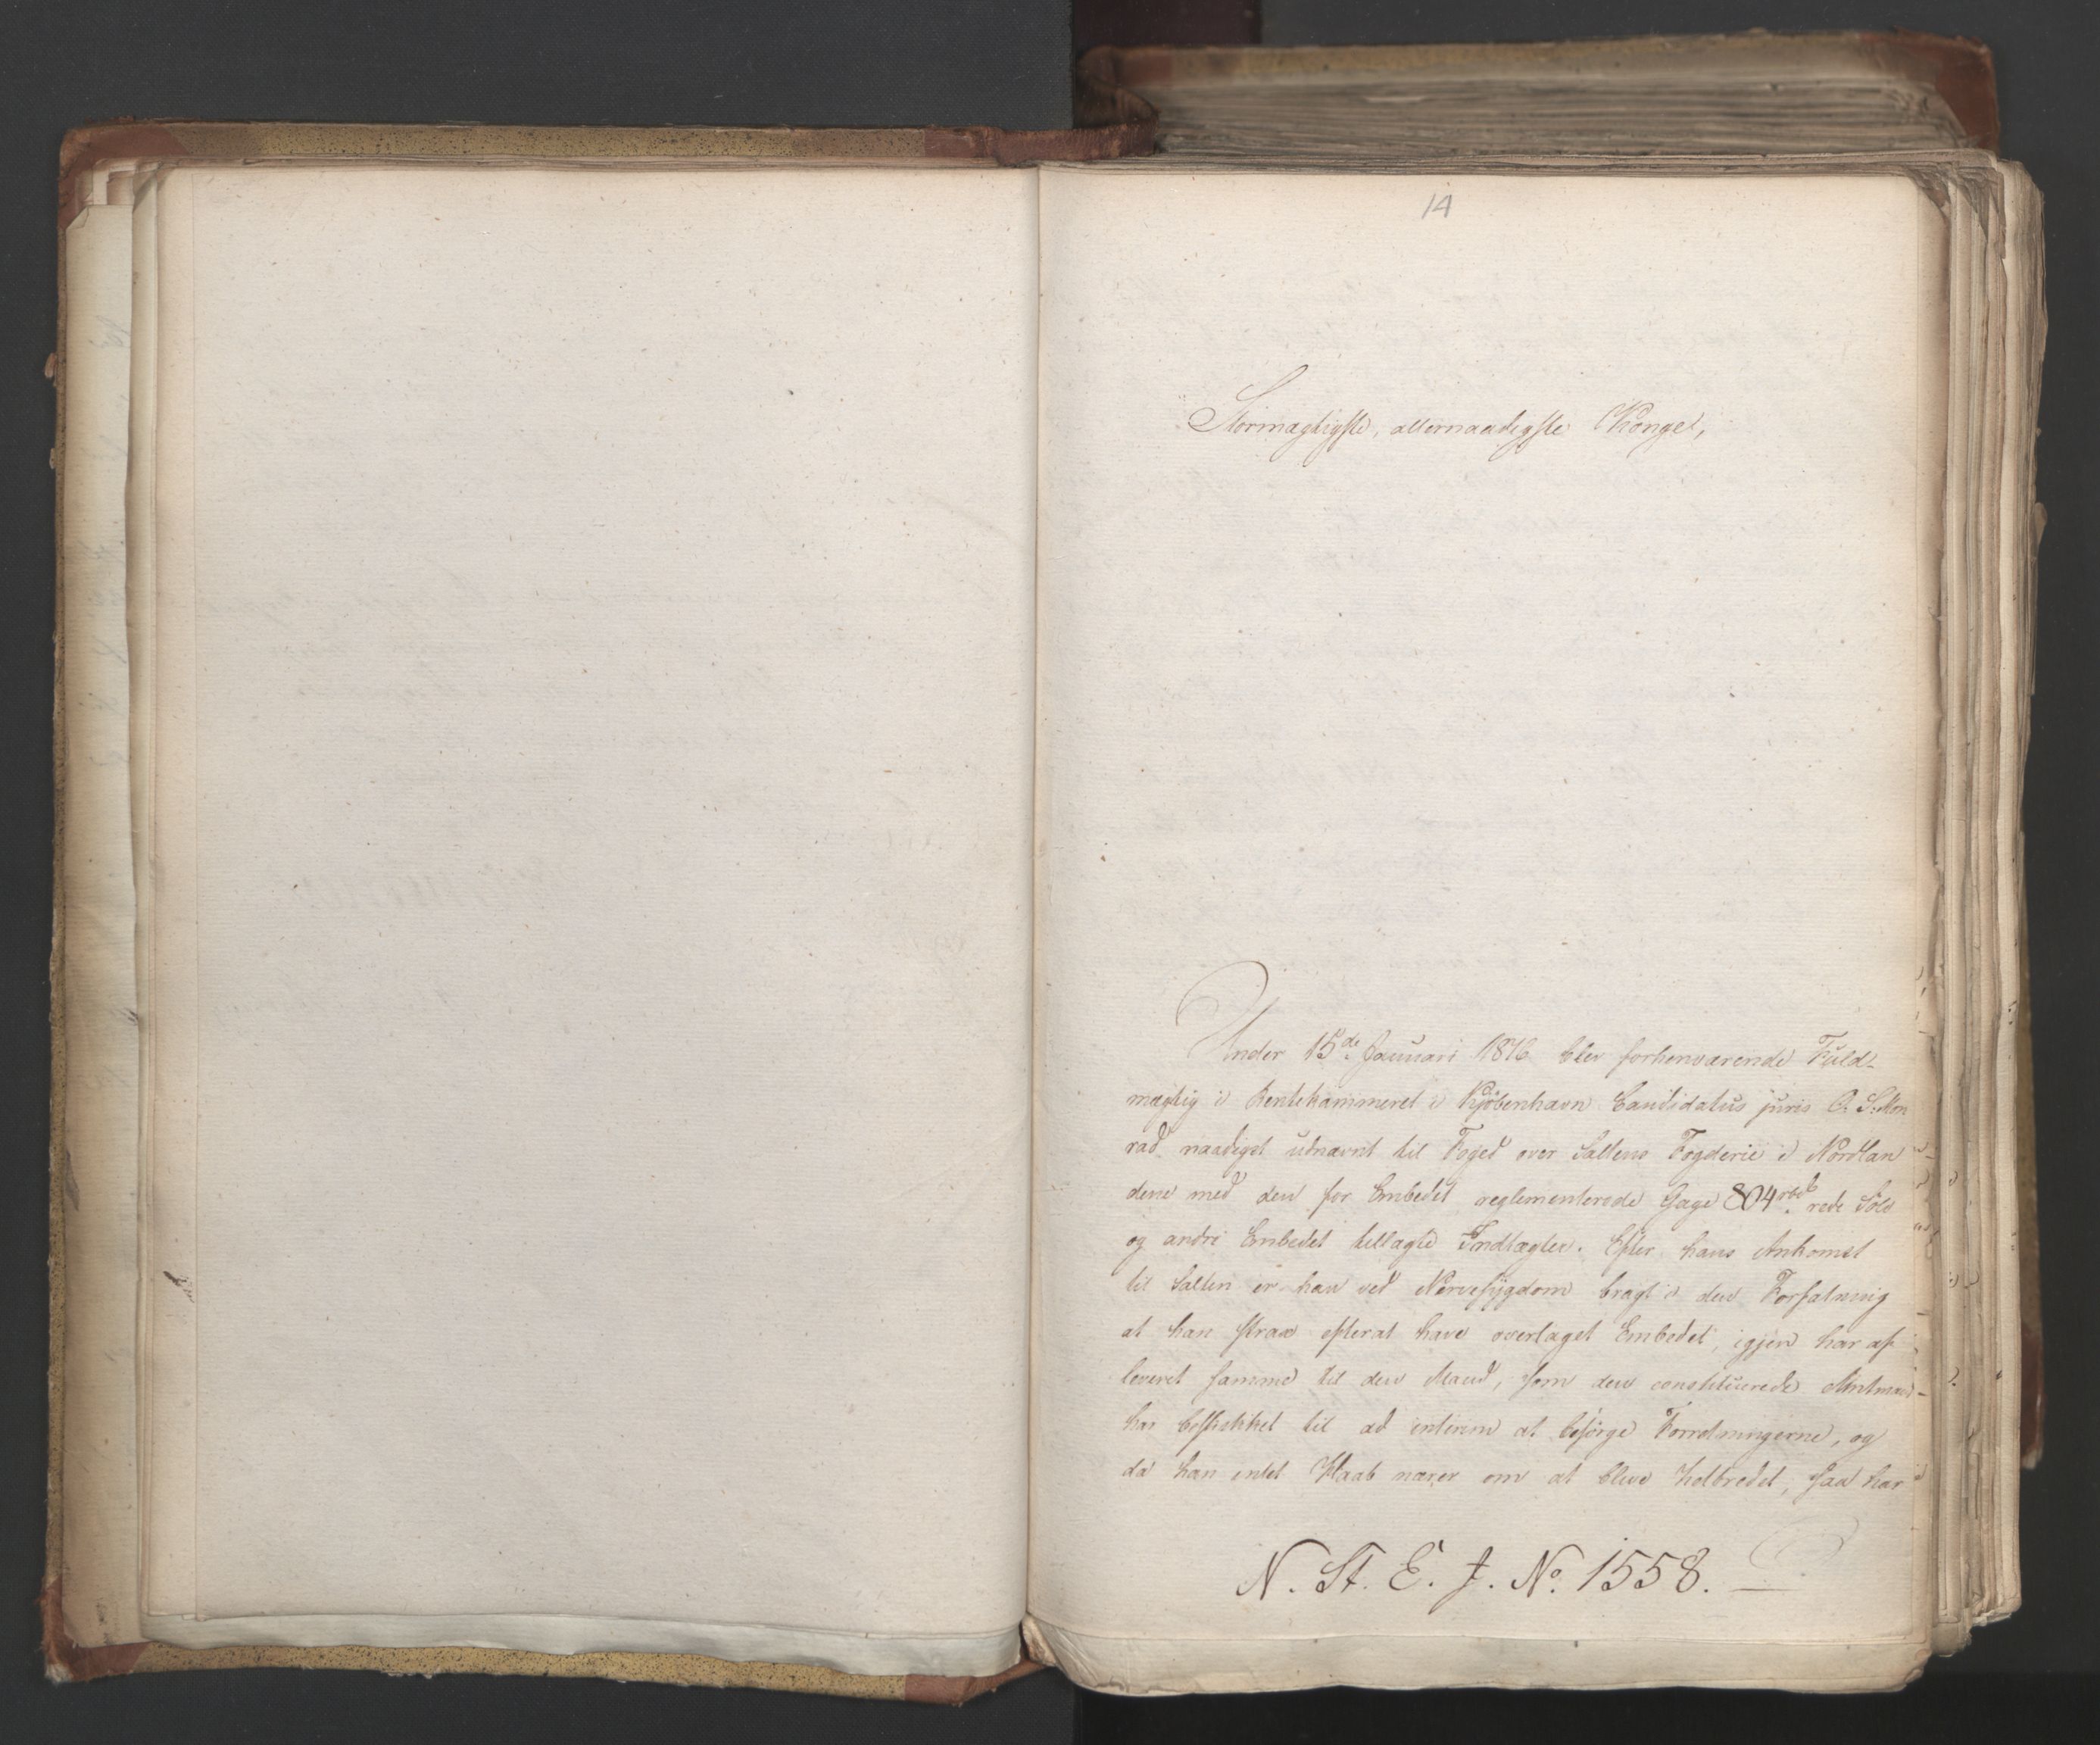 14
Stormægtigste, allernaadigste Konge,
Under 15de Januari 1816 blev forhenværende Fuld-
mægtig i Rentekammeret i Kjöbenhavn Candidatus juris O. S. Mon
rad naadigst udnævnt til Foged over Saltens Fogderie i Nordlan
dene med den for Embedet reglementerede Gage 804 rbd. rede Sölv
og andre Embedet tillagte Indtægter. Efter hans Ankomst
til Salten er han ved Nervesygdom bragt i den Forfatning
at han strax efterat have overtaget Embedet, igjen har af
leveret samme til den Mand, som den constituerede Amtmand
har beskikket til ad interim at besörge Forretningerne, og
da han intet Haab nærer om at blive helbredet, saa har
N. St. E. J. No. 1558.